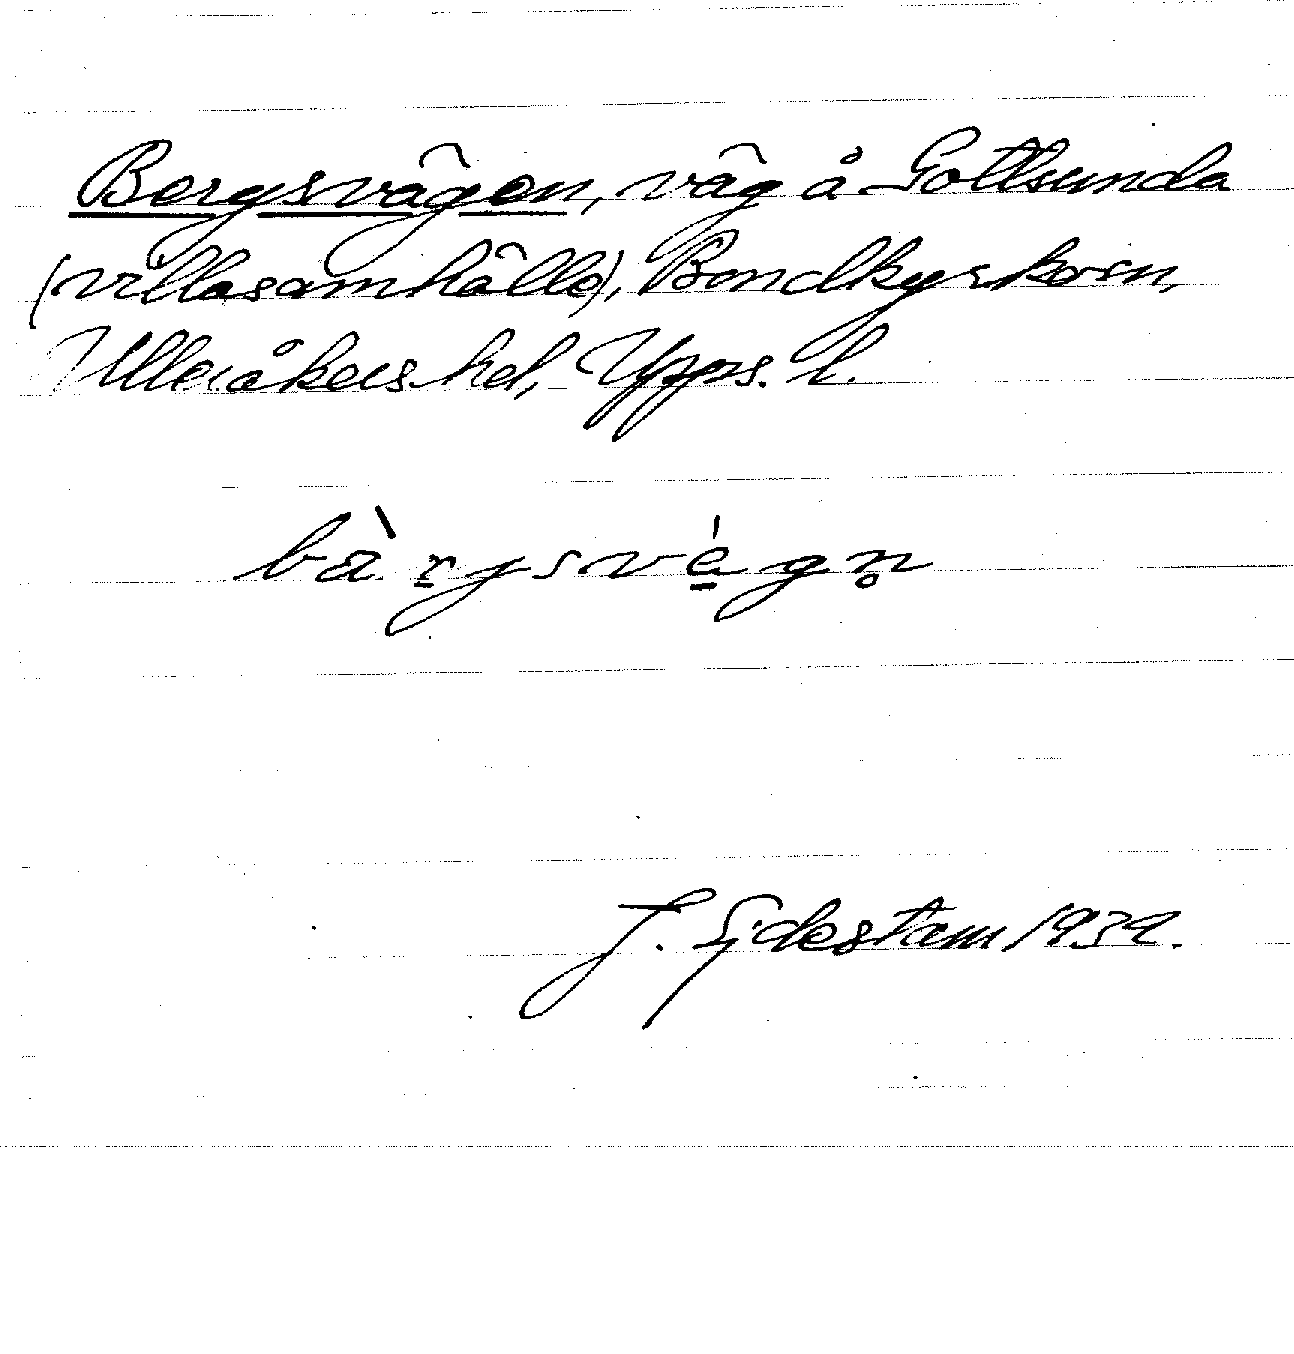 Bergsvägen, väg å Gottsunda
(villasamhälle), Bondkyrkosn,
Ulleråkers hd, Upps. l.
bàrgsvégn̥
J. Sjdestam 1939.